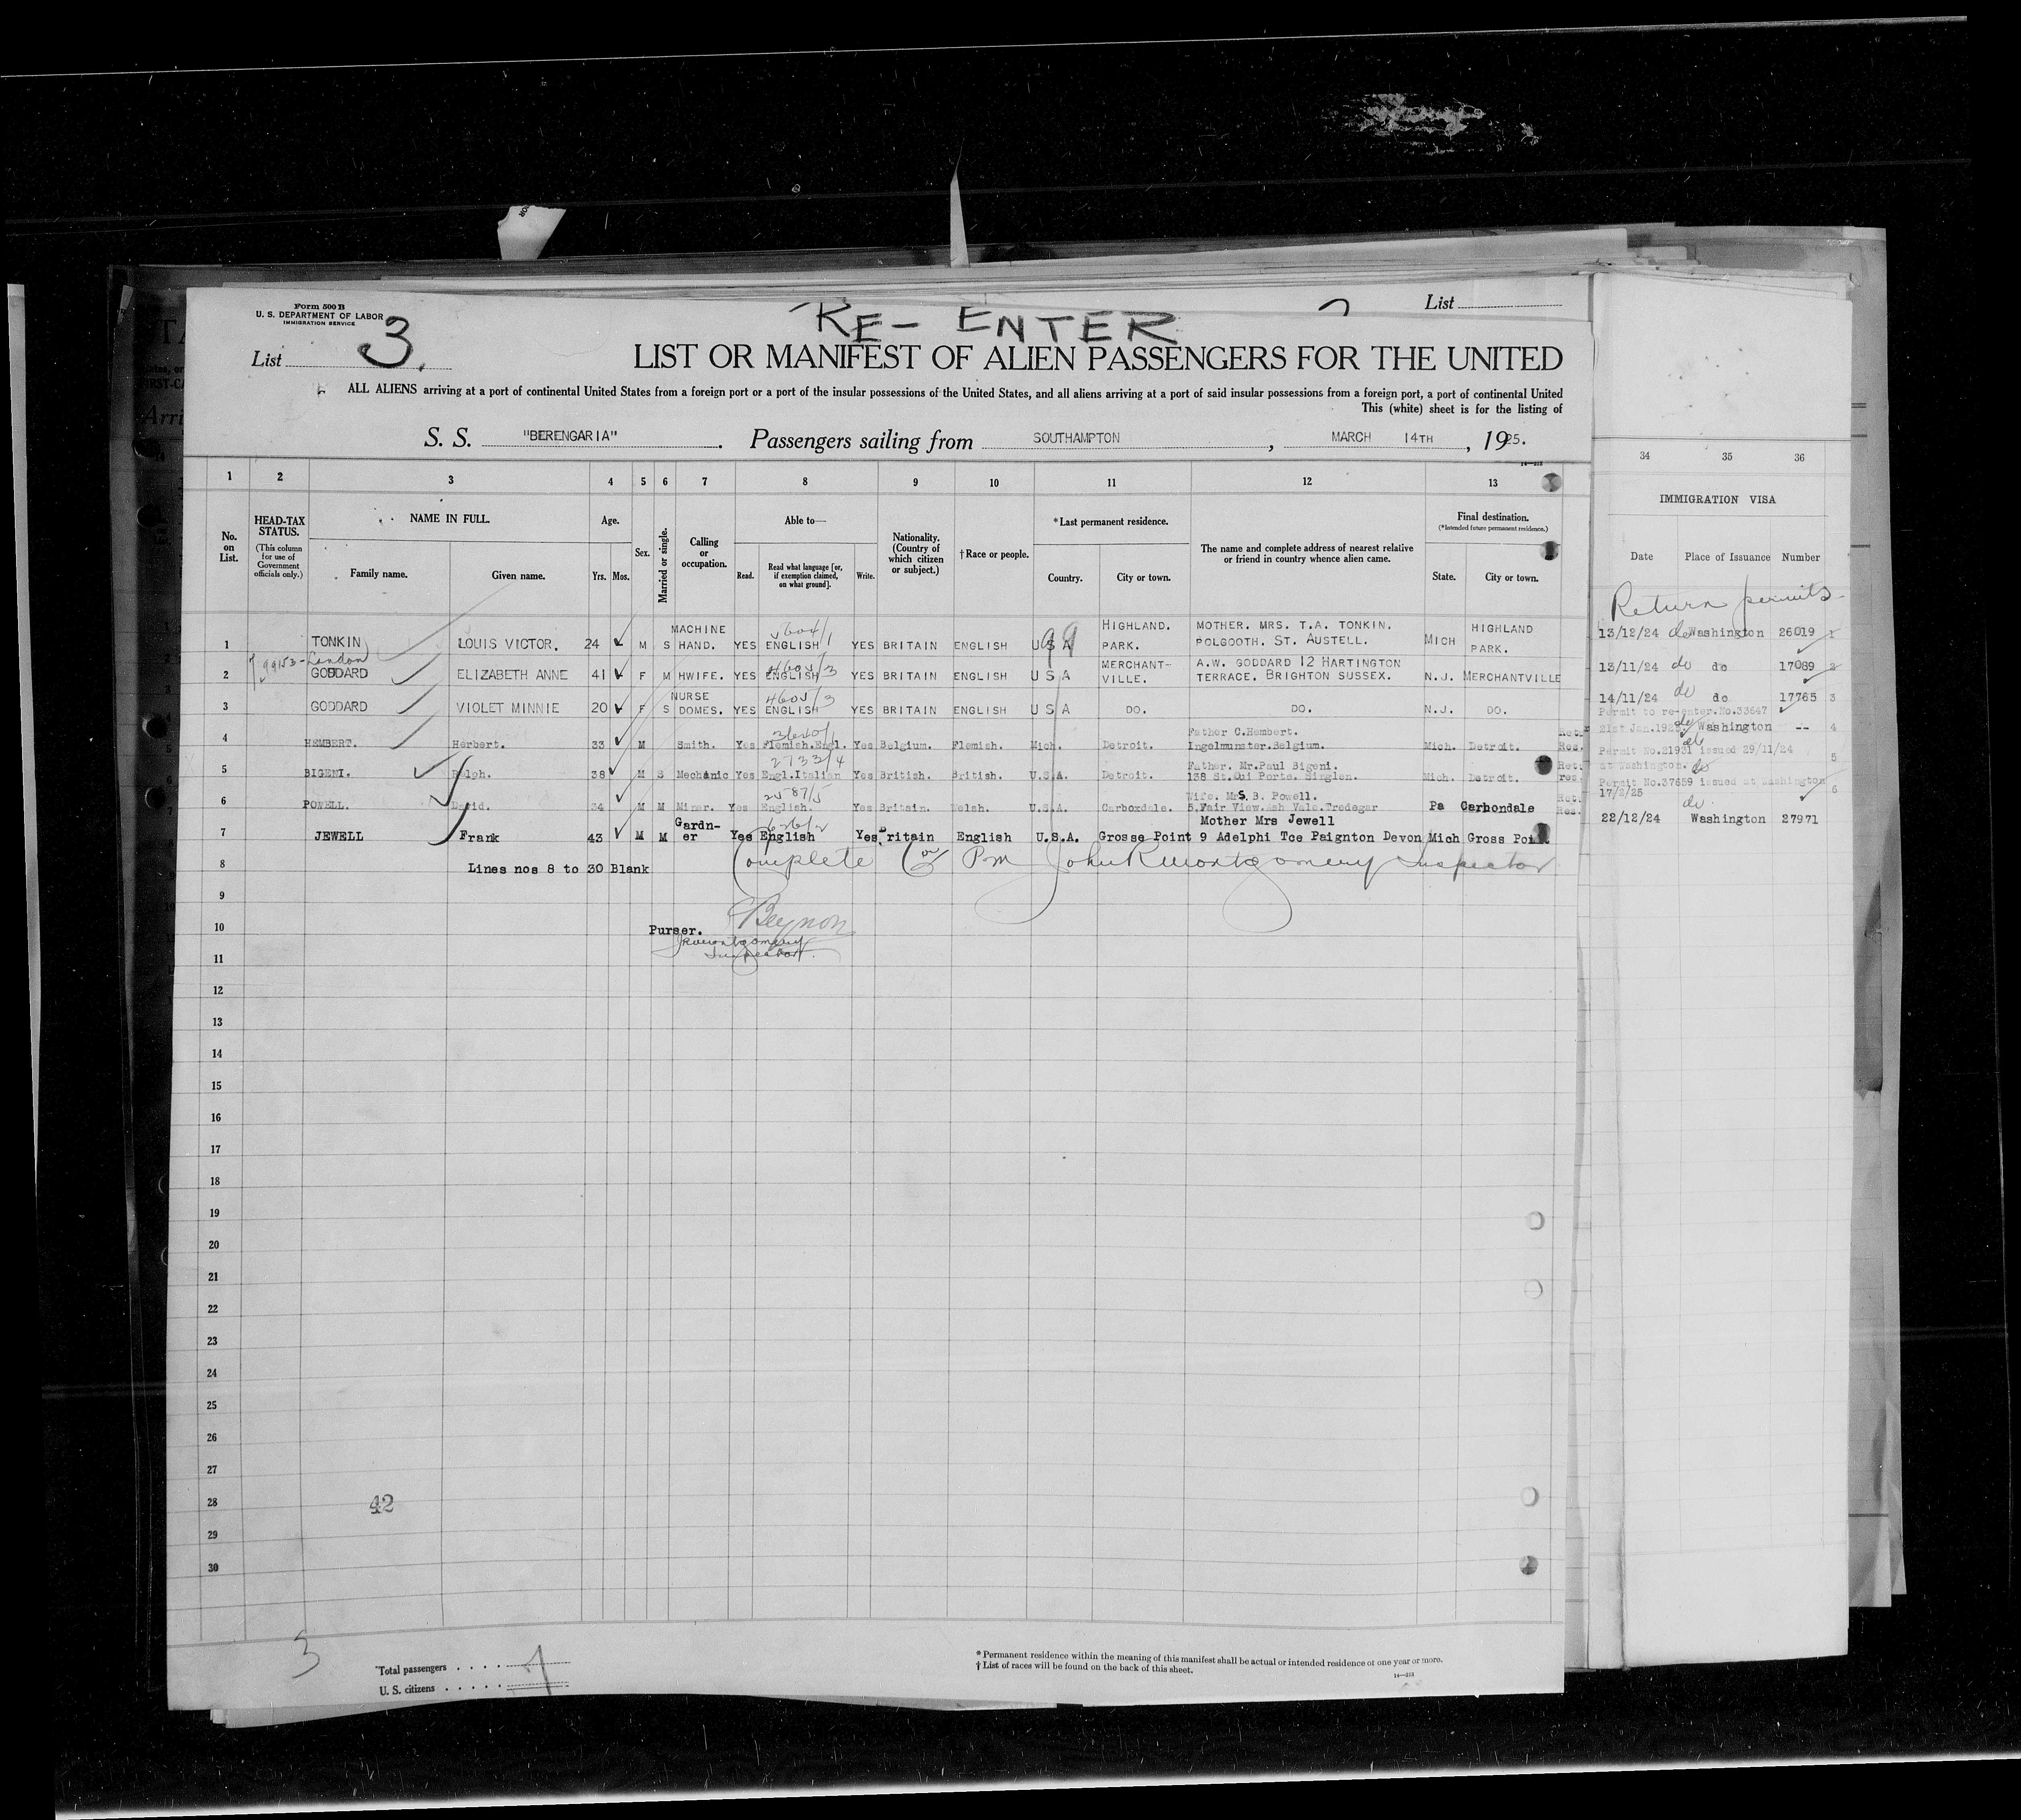 Form 500 B
U. S. DEPARTMENT OF LABOR
IMMIGRATION SERVICE
List 3.
RE- ENTER
List
LIST OR MANIFEST OF ALIEN PASSENGERS FOR THE UNITED
ALL ALIENS arriving at a port of continental United States from a foreign port or a port of the insular possessions of the United States, and all aliens arriving at a port of said insular possessions from a foreign port, a port of continental United
This (white) sheet is for the listing of
S. S. "BERENGARIA". Passengers sailing from SOUTHAMPTON, MARCH 14TH, 1925.
1 2 3 4 5 6 7 8 9 10 11 12 13 34 35 36
No. on List.
HEAD-TAX STATUS.
(This column for use of Government officials only.)
NAME IN FULL.
Family name. Given name.
Age.
Yrs. Mos.
Sex.
Married or single.
Calling or occupation.
Able to—
Read. Read what language [or, if exemption claimed, on what ground]. Write.
Nationality. (Country of which citizen or subject.)
†Race or people.
*Last permanent residence.
Country. City or town.
The name and complete address of nearest relative or friend in country whence alien came.
Final destination.
(*Intended future permanent residence.)
State. City or town.
IMMIGRATION VISA
Date Place of Issuance Number
Return permits
1 TONKIN LOUIS VICTOR. 24 M S MACHINE HAND. YES ENGLISH YES BRITAIN ENGLISH U S A HIGHLAND. PARK. MOTHER. MRS. T.A. TONKIN. POLGOOTH. ST. AUSTELL. MICH HIGHLAND PARK. 13/12/24 Washington 26019 1
London
2 GODDARD ELIZABETH ANNE 41 F M HWIFE. YES ENGLISH YES BRITAIN ENGLISH U S A MERCHANT-VILLE. A.W. GODDARD 12 HARTINGTON TERRACE. BRIGHTON SUSSEX. N.J. MERCHANTVILLE 13/11/24 do do 17089 2
3 GODDARD VIOLET MINNIE 20 F S NURSE DOMES. YES ENGLISH YES BRITAIN ENGLISH U S A DO. DO. N.J. DO. 14/11/24 do do 17765 3
Permit to re-enter.No.33647
4 HEMBERT. Herbert. 33 M Smith. Yes Flemish.Engl. Yes Belgium. Flemish. Mich. Detroit. Father C.Hembert. Ingelmunster.Belgium. Mich. Detroit. 21st Jan.1925 Washington -- 4
Permit No.21931 issued 29/11/24
5 BIGENI. Ralph. 38 M S Mechanic Yes Engl.Italian Yes British. British. U.S.A. Detroit. Father. Mr.Paul Bigeni. Mich. Detroit. at Washington. do 5
Permit No.37659 issued at Washington
6 POWELL. David. 34 M M Miner. Yes English. Yes Britain. Welsh. U.S.A. Carboxdale. Wife. Mrs. B. Powell. 5.Fair View.Ash Vale.Tredegar Pa Carbondale 17/2/25 do. 6
7 JEWELL Frank 43 M M Gardn-er Yes English Yes Britain English U.S.A. Grosse Point Mother Mrs Jewell 9 Adelphi Tce Paignton Devon Mich Gross Point 22/12/24 Washington 27971
8 Lines nos 8 to 30 Blank Complete Pm John R Montgomery Inspector
9
10 Purser. Beynon
JR Montgomery
11 Inspector.
12
13
14
15
16
17
18
19
20
21
22
23
24
25
26
27
28 42
29
30
3
Total passengers . . . . 7
U. S. citizens . . . . .
* Permanent residence within the meaning of this manifest shall be actual or intended residence of one year or more.
† List of races will be found on the back of this sheet.